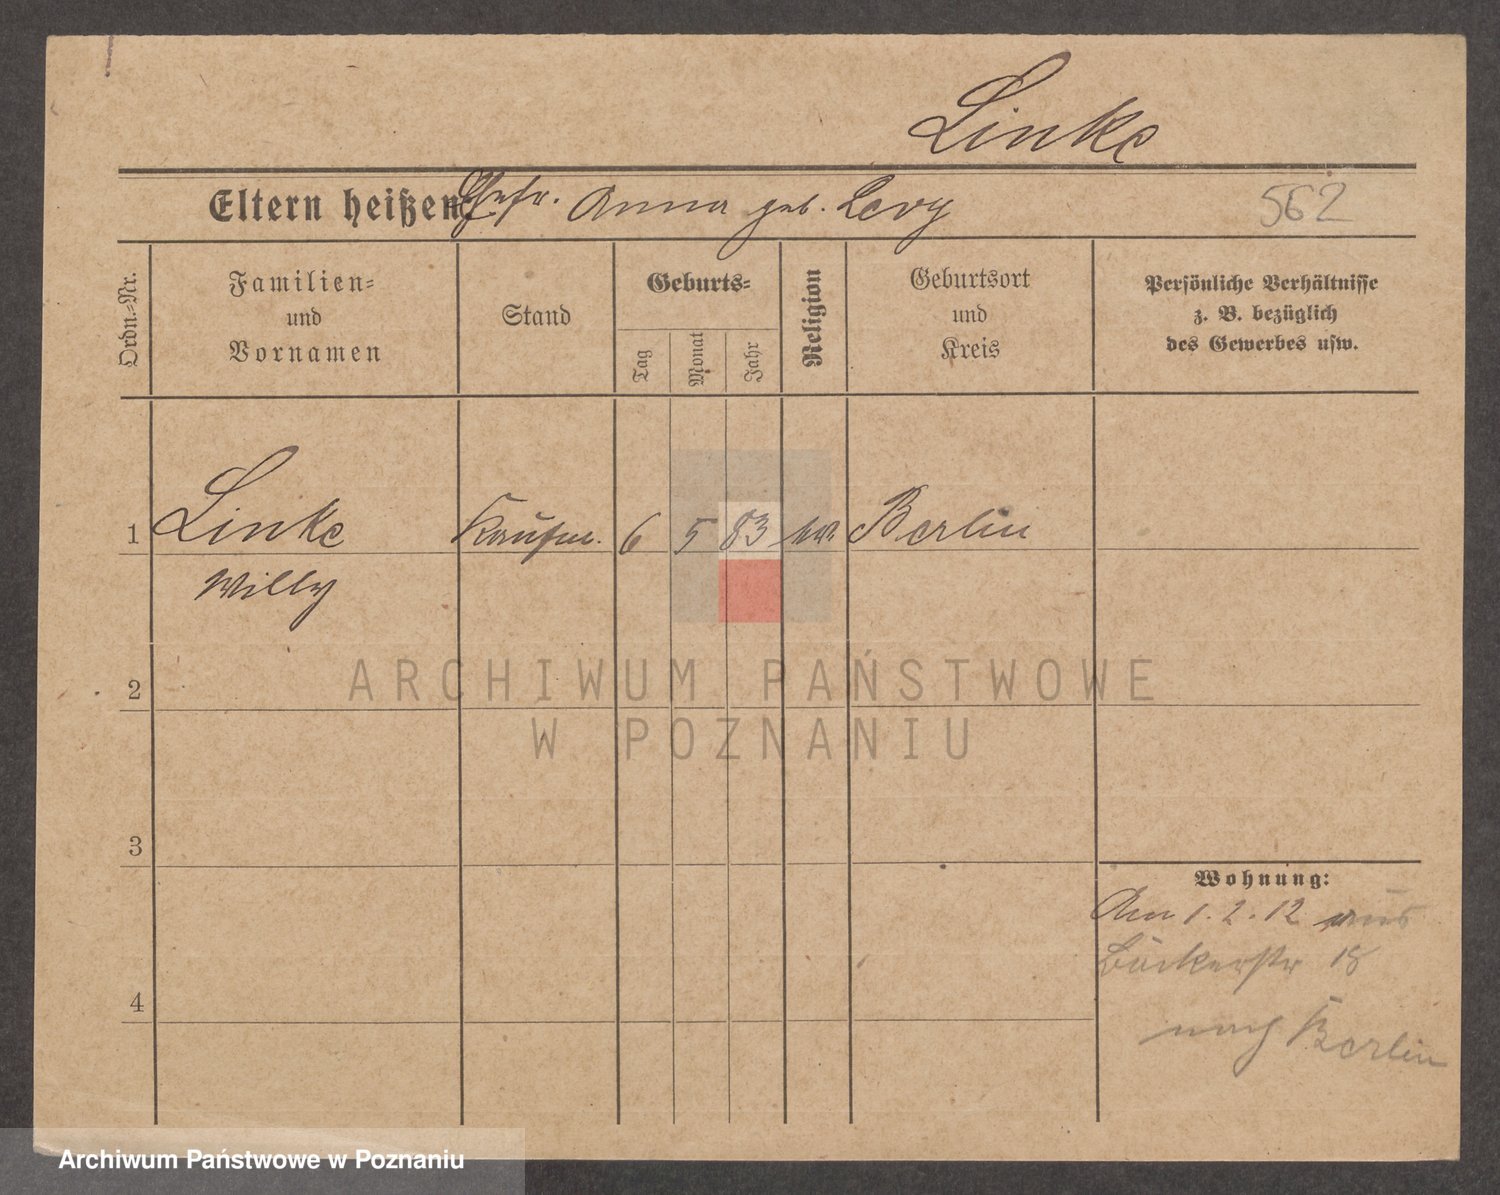 Linke
Eltern heißen: Ehefr. Anna geb. Levy
562
Ordn.-Nr.
Familien-
und
Vornamen
Stand
Geburts-
Tag
Monat
Jahr
Religion
Geburtsort
und
Kreis
Persönliche Verhältnisse
z. B. bezüglich
des Gewerbes usw.
1 Linke Kaufm. 6 5 83 Berlin
Willy
2
3
4
Wohnung:
Am 1. 2. 12 aus
Bäckerstr 18
nach Berlin
ARCHIWUM PAŃSTWOWE
W POZNANIU
Archiwum Państwowe w Poznaniu